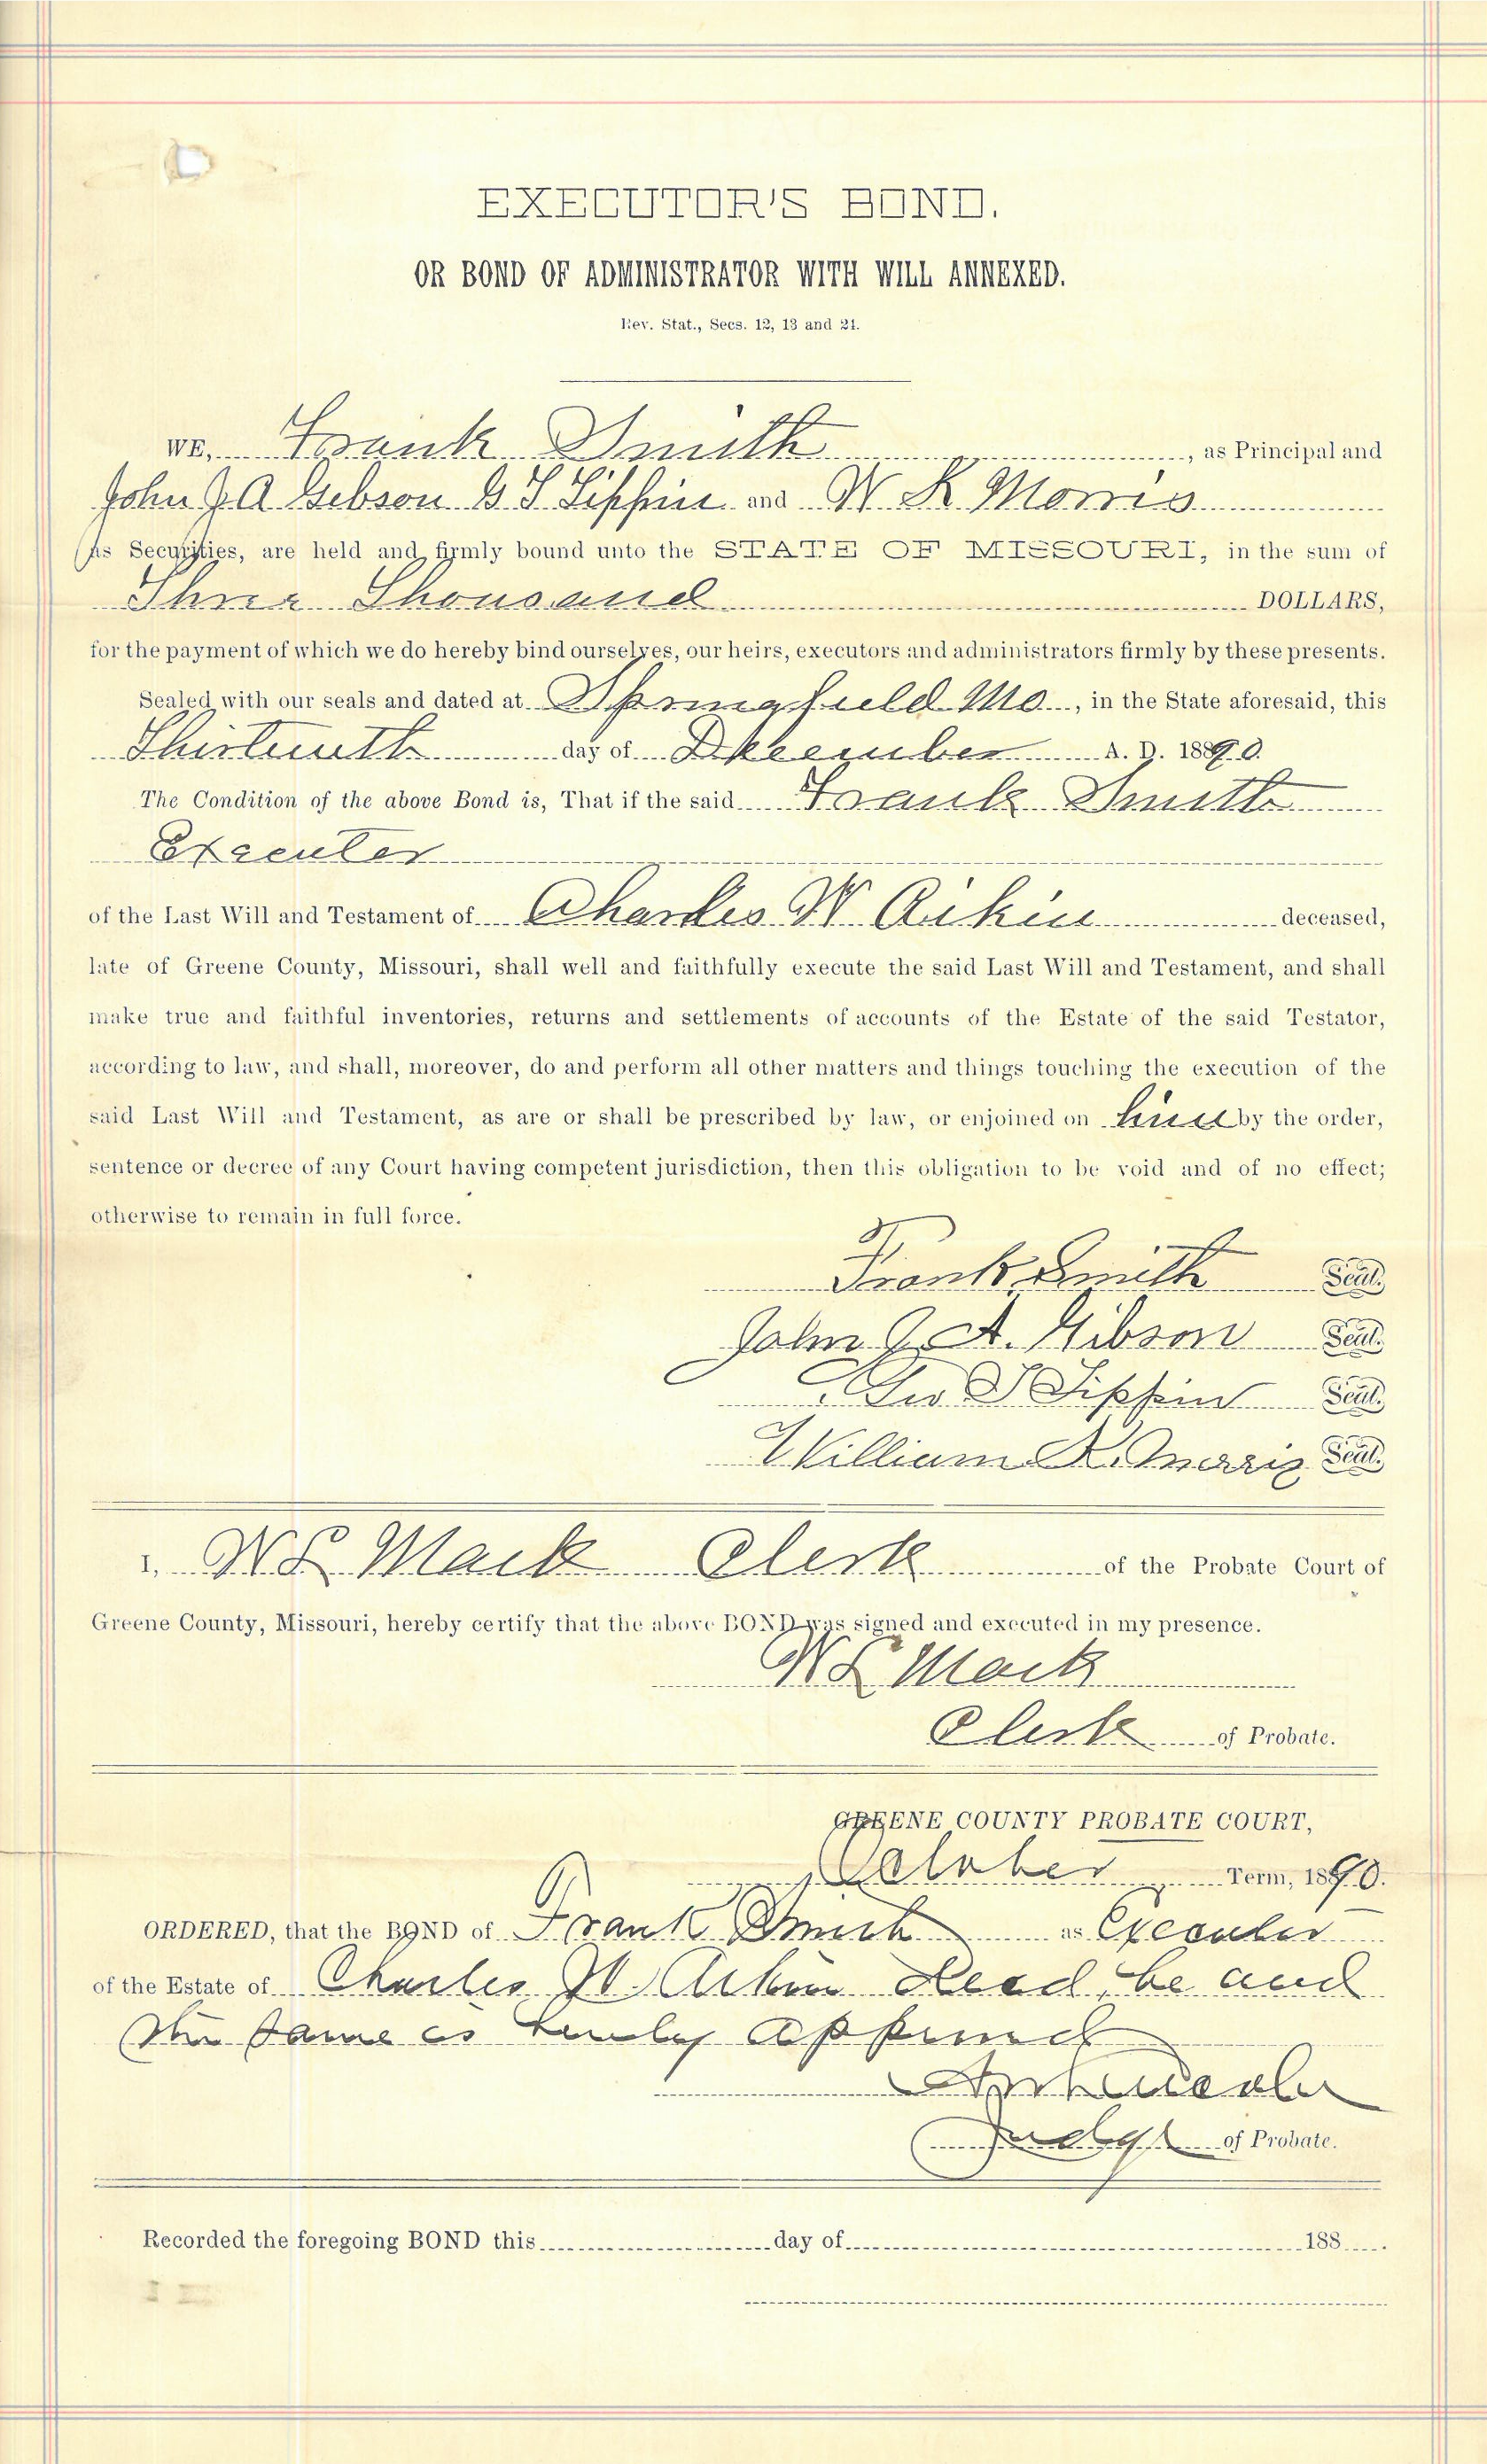 EXECUTOR'S BOND.
OR BOND OF ADMINISTRATOR WITH WILL ANNEXED.
Rev. Stat., Secs. 12, 13 and 21.
WE, Frank Smith, as Principal and
John J A Gibson G S Tippin and W K Morris
as Securities, are held and firmly bound unto the STATE OF MISSOURI, in the sum of
Three Thousand DOLLARS,
for the payment of which we do hereby bind ourselves, our heirs, executors and administrators firmly by these presents.
Sealed with our seals and dated at Springfield Mo, in the State aforesaid, this
Thirteenth day of December A. D. 1890.
The Condition of the above Bond is, That if the said Frank Smith
Executor
of the Last Will and Testament of Charles W Aikin deceased,
late of Greene County, Missouri, shall well and faithfully execute the said Last Will and Testament, and shall
make true and faithful inventories, returns and settlements of accounts of the Estate of the said Testator,
according to law, and shall, moreover, do and perform all other matters and things touching the execution of the
said Last Will and Testament, as are or shall be prescribed by law, or enjoined on him by the order,
sentence or decree of any Court having competent jurisdiction, then this obligation to be void and of no effect;
otherwise to remain in full force.
Frank Smith Seal.
John J. A. Gibson Seal.
Geo S Tippin Seal.
William K. Morris Seal.
I, W L Mack Clerk of the Probate Court of
Greene County, Missouri, hereby certify that the above BOND was signed and executed in my presence.
W L Mack
Clerk of Probate.
GREENE COUNTY PROBATE COURT,
October Term, 1890.
ORDERED, that the BOND of Frank Smith as Executor
of the Estate of Charles W. Aikin Decd, be and
the same is hereby approved
Judge of Probate.
Recorded the foregoing BOND this day of 188 .